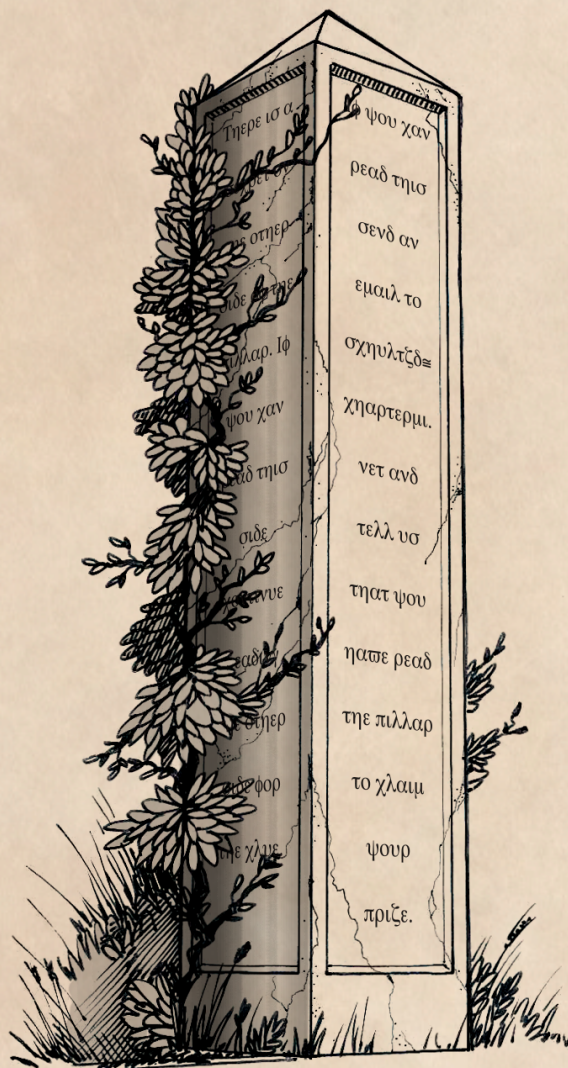 Τηερε ισ α
οτηερ
σιδε
Ιφ
ψου χαν
τηισ
σιδε
οτηερ
φορ
χλυε
ψου χαν
ρεαδ τηισ
σενδ αν
εμαιλ το
σχηυλτζδ≅
χηαρτερμι.
νετ ανδ
τελλ υσ
τηατ ψου
ηαϖε ρεαδ
τηε πιλλαρ
το χλαιμ
ψουρ
πριζε.